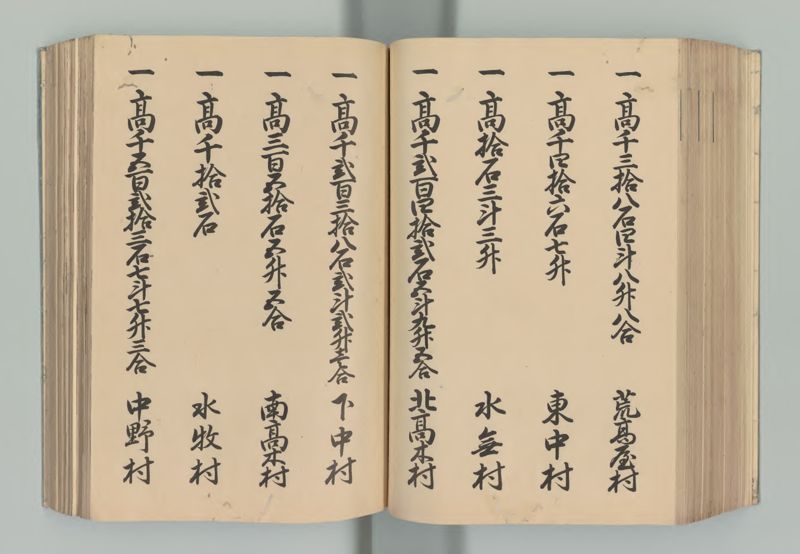 一 高千三拾八石四斗八升八合 荒高屋村
一 高千四拾六石七升 東中村
一 高拾石三斗三升 水無村
一 高千弐百四拾弐石六斗九升五合 北高木村
一 高千弐百三拾八石弐斗弐升三合 下中村
一 高三百五拾石五升五合 南高木村
一 高千拾弐石 水牧村
一 高千五百弐拾三石七斗七升三合 中野村